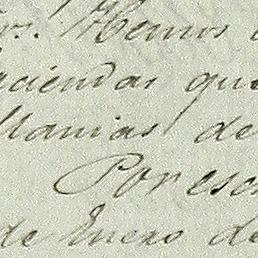 rs. Hemos
aciendas que
llanias de
Por esc
de Enero de